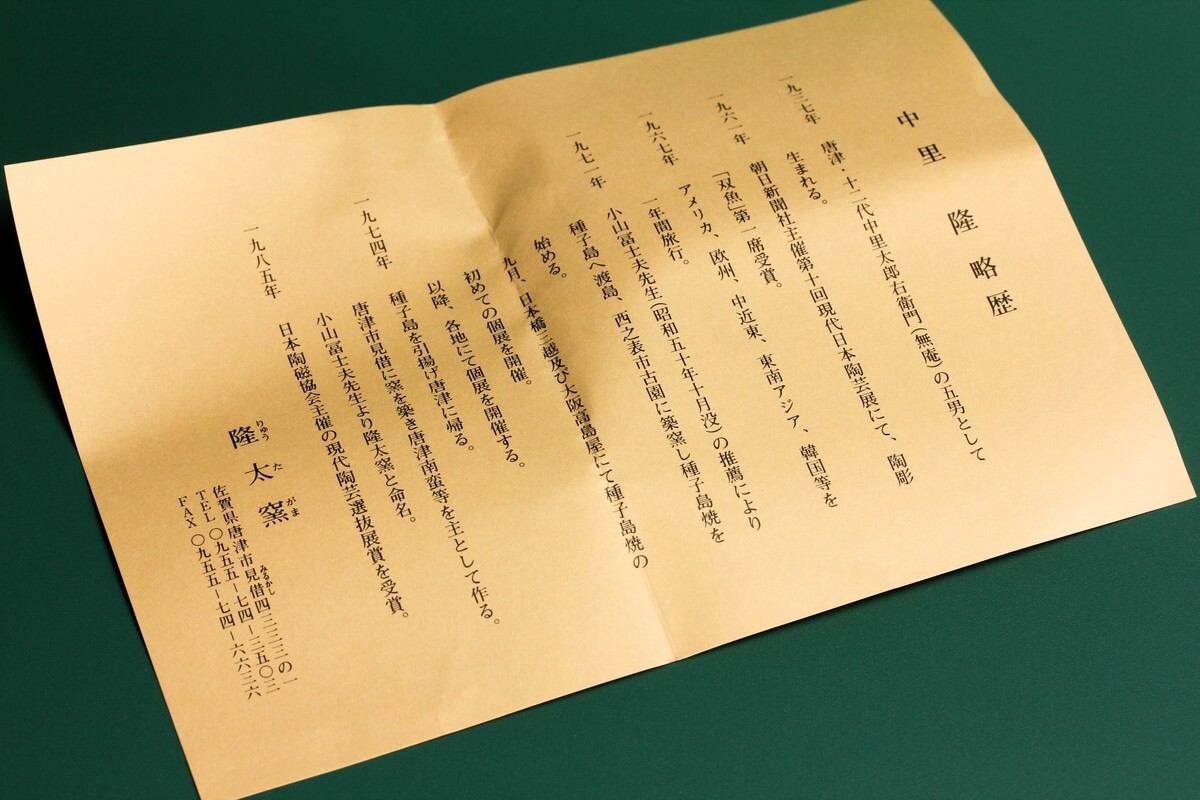 中里 隆 略歴
一九三七年 唐津・十二代中里太郎右衛門(無庵)の五男として
生まれる。
一九六一年 朝日新聞社主催第十回現代日本陶芸展にて、陶彫
「双魚」第一席受賞。
一九六七年 アメリカ、欧州、中近東、東南アジア、韓国等を
一年間旅行。
一九七一年 小山冨士夫先生(昭和五十年十月没)の推薦により
種子島へ渡島、西之表市古園に築窯し種子島焼を
始める。
九月、日本橋三越及び大阪高島屋にて種子島焼の
初めての個展を開催。
以降、各地にて個展を開催する。
一九七四年 種子島を引揚げ唐津に帰る。
唐津市見借に窯を築き唐津南蛮等を主として作る。
小山冨士夫先生より隆太窯と命名。
一九八五年 日本陶磁協会主催の現代陶芸選抜展賞を受賞。
りゅう た がま
隆太窯
みるかし
佐賀県唐津市見借四三三三の一
TEL〇九五五-七四-三五〇三
FAX〇九五五-七四-六六三六